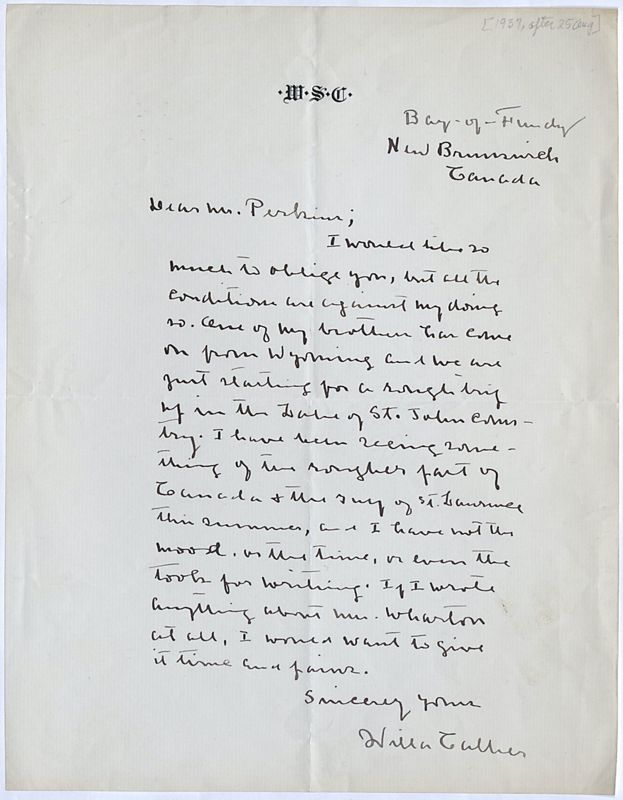 [1937, after 25 Aug]
·W·S·C·
Bay-of-Fundy
New Brunswick
Canada
Dear Mr. Perkins;
I would like so
much to oblige you, but all the
conditions are against my doing
so. One of my brothers has come
on from Wyoming and we are
just starting for a rough trip
up in the Lake of St. John coun-
try. I have been seeing some-
thing of the rougher part of
Canada & the Gulf of St. Lawrence
this summer, and I have not the
mood, or the time, or even the
tools for writing. If I wrote
anything about Mrs. Wharton
at all, I would want to give
it time and pains.
Sincerely yours
Willa Cather